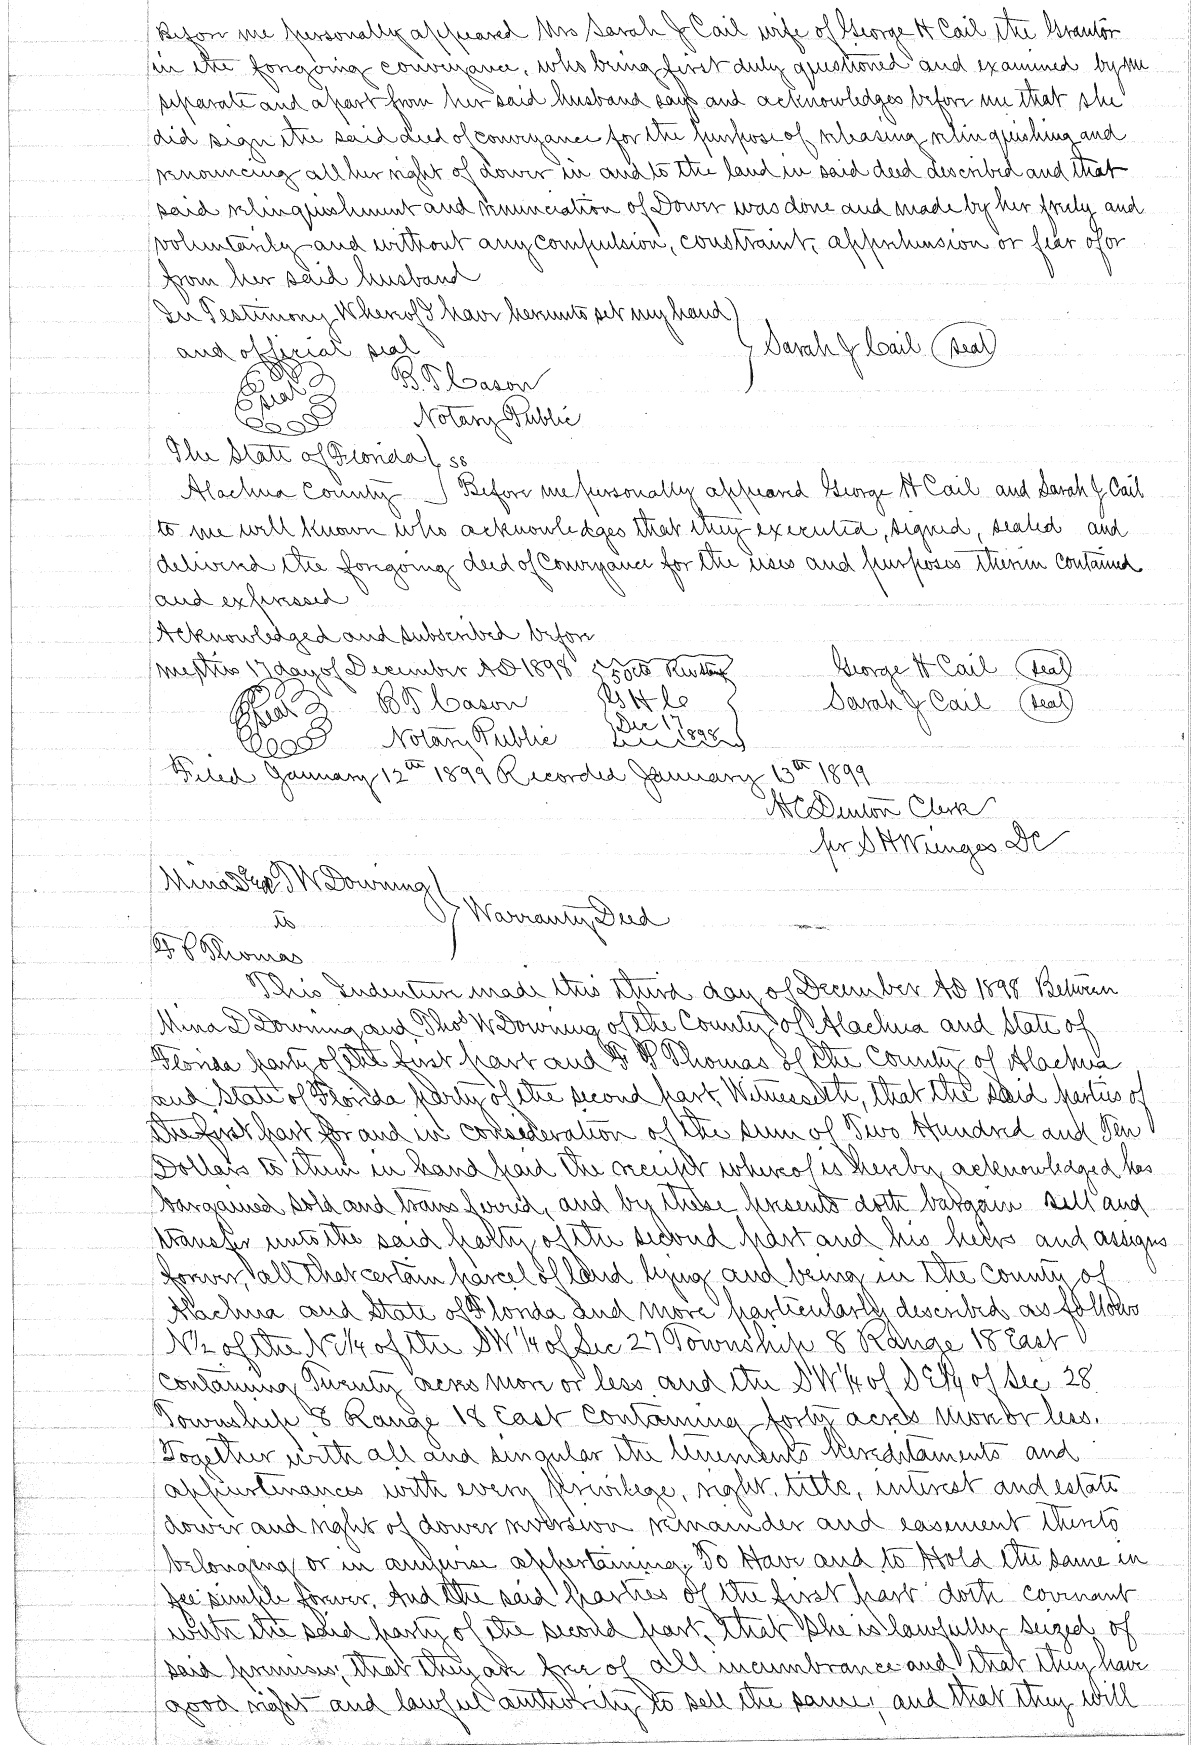 Before me personally appeared Mrs Sarah J Cail wife of George H Cail the Grantor
in the forgoing conveyance, who being first duly questioned and examined by me
separate and apart from her said husband says and acknowledges before me that she
did sign the said deed of conveyance for the purpose of releasing relinquishing and
renouncing all her right of dower in and to the land in said deed described and that
said relinquishment and renunciation of Dower was done and made by her freely and
voluntarily and without any compulsion, constraint, apprehension or fear of or
from her said husband
In Testimony Whereof I have hereunto set my hand
and official seal
Sarah J Cail (seal)
Seal
B F Cason
Notary Public
The State of Florida } ss
Alachua County } Before me personally appeared George H Cail and Sarah J Cail
to me well known who acknowledges that they executed, signed, sealed and
delivered the forgoing deed of Conveyance for the uses and purposes therein contained
and expressed
Acknowledged and subscribed before
me this 17 day of December AD 1898 50cts Rev Stamp George H Cail (seal)
Seal B F Cason G H C Sarah J Cail (seal)
Notary Public Dec 17 1898
Filed January 12th 1899 Recorded January 13th 1899
H C Denton Clerk
per S H Wienges DC
Mina D &  T W Downing
to } Warranty Deed
F P Thomas
This Indenture made this third day of December AD 1898 Between
Mina D Downing and Thos W Downing of the County of Alachua and State of
Florida party of the first part and F P Thomas of the County of Alachua
and State of Florida party of the second part, Witnesseth, that the said parties of
the first part for and in consideration of the sum of Two Hundred and Ten
Dollars to them in hand paid the receipt whereof is hereby acknowledged has
bargained sold and transferred, and by these presents doth bargain sell and
transfer unto the said party of the second part and his heirs and assigns
forever, all that certain parcel of land lying and being in the County of
Alachua and State of Florida and more particularly described as follows
N½ of the NE¼ of the SW¼ of Sec 27 Township 8 Range 18 East
containing Twenty acres more or less and the SW¼ of SE¼ of Sec 28
Township 8 Range 18 East containing forty acres more or less.
Together with all and singular the tenements hereditaments and
appurtenances with every privilege, right, title, interest and estate
dower and right of dower reversion remainder and easement thereto
belonging or in anywise appertaining. To Have and to Hold the same in
fee simple forever. And the said parties of the first part doth covenant
with the said party of the second part, that she is lawfully seized of
said premises, that they are free of all incumbrance and that they have
good right and lawful authority to sell the same, and that they will